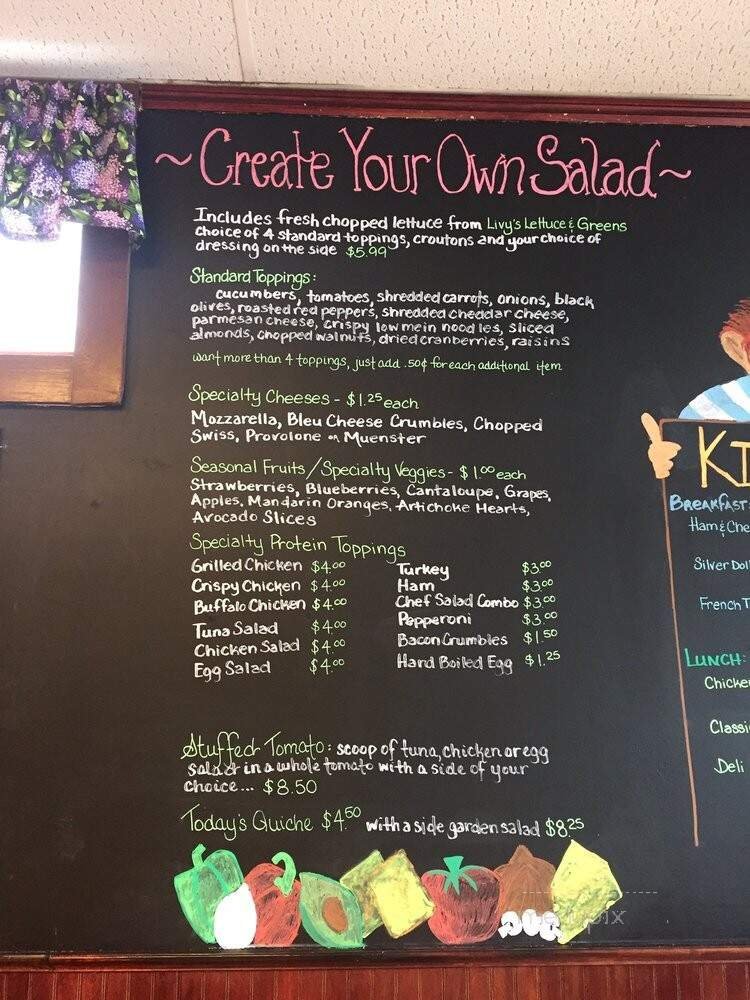 ~Create Your Own Salad~
Includes fresh chopped lettuce from Livy's Lettuce & Greens
choice of 4 standard toppings, croutons and your choice of
dressing on the side $5.99
Standard Toppings:
cucumbers, tomatoes, shredded carrots, onions, black
olives, roasted red peppers, shredded cheddar cheese,
parmesan cheese, crispy low mein noodles, sliced
almonds, chopped walnuts, dried cranberries, raisins
want more than 4 toppings, just add .50¢ for each additional item
Specialty Cheeses - $1.25 each
Mozzarella, Bleu Cheese Crumbles, Chopped
Swiss, Provolone or Muenster
Seasonal Fruits/Specialty Veggies - $1.00 each
Strawberries, Blueberries, Cantaloupe, Grapes,
Apples, Mandarin Oranges, Artichoke Hearts,
Avocado Slices
Specialty Protein Toppings
Grilled Chicken $4.00
Crispy Chicken $4.00
Buffalo Chicken $4.00
Tuna Salad $4.00
Chicken Salad $4.00
Egg Salad $4.00
Turkey $3.00
Ham $3.00
Chef Salad Combo $3.00
Pepperoni $3.00
Bacon Crumbles $1.50
Hard Boiled Egg $1.25
Stuffed Tomato: scoop of tuna, chicken or egg
salad in a whole tomato with a side of your
choice... $8.50
Today's Quiche $4.50 with a side garden salad $8.25
KI
BREAKFAST:
Ham & Che
Silver Doll
French T
LUNCH:
Chicke
Classi
Deli